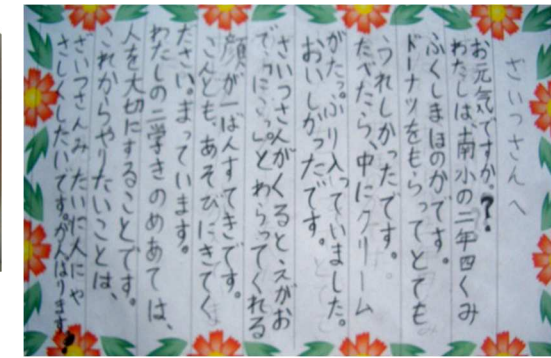 ざいつさんへ
お元気ですか。?
わたしは、南小の二年四くみ
ふくしまほのかです。
ドーナツをもらってとても
うれしかったです。
たべたら、中にクリーム
がたっぷり入っていました。
おいしかったです。
ざいつさんがくるとえがお
でにこっとわらってくれる
顔が一ばんすてきです。
こんども、あそびにきてく
ださい。まっています。
わたしの二学きのめあては、
人を大切にすることです。
これからやりたいことは、
ざいつさんみたいに人にや
さしくしたいです。がんばります!